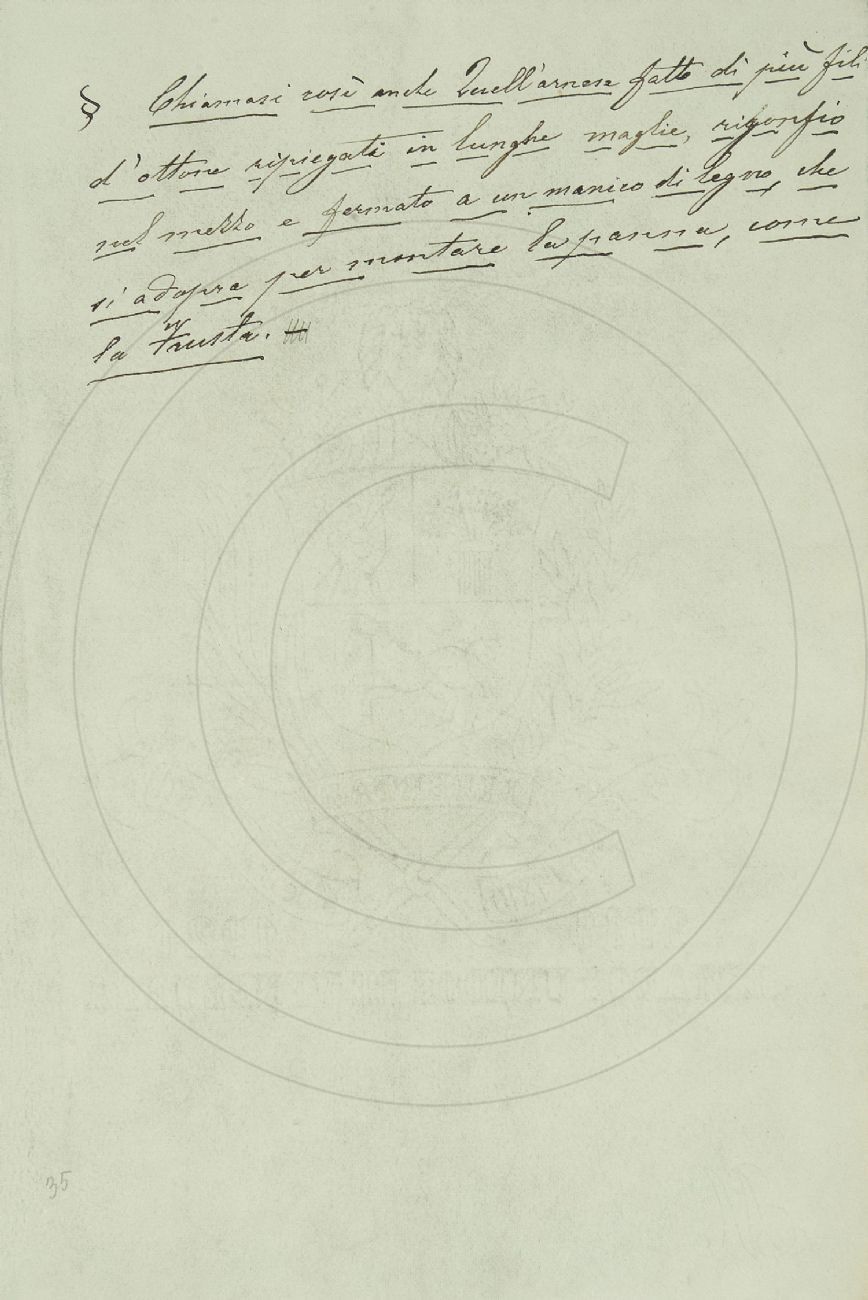 § Chiamasi così anche Quell'arnese fatto di più fili
d'ottone ripiegati in lunghe maglie, rigonfio
nel mezzo e fermato a un manico di legno, che
si adopra per montare la panna, come
la Frusta.
35